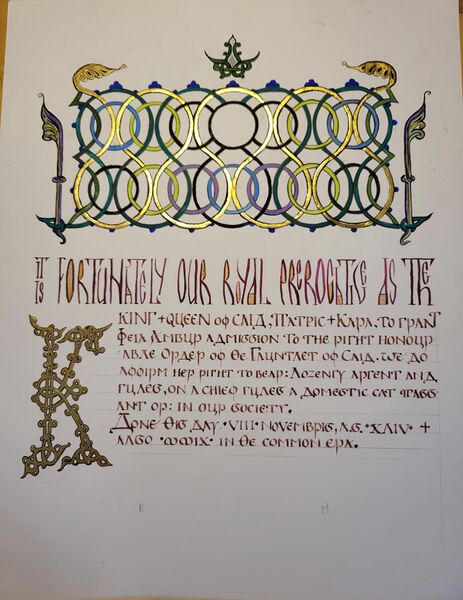 IT IS FORTUNATELY OUR ROYAL PREROGATIVE AS THE
KING + QUEEN OF CAID, PATRIC + KARA, TO GRANT
FEIA AMBUR ADMISSION TO THE RIGHT HONOUR-
ABLE ORDER OF THE GAUNTLET OF CAID. WE DO
AFFIRM HER RIGHT TO BEAR: LOZENGY ARGENT AND
GULES, ON A CHIEF GULES A DOMESTIC CAT PASS-
ANT OR: IN OUR SOCIETY.
DONE THIS DAY ·VIII· NOVEMBRIS, A.S. ·XLIV· +
ALSO ·MMIX· IN THE COMMON ERA.
K H